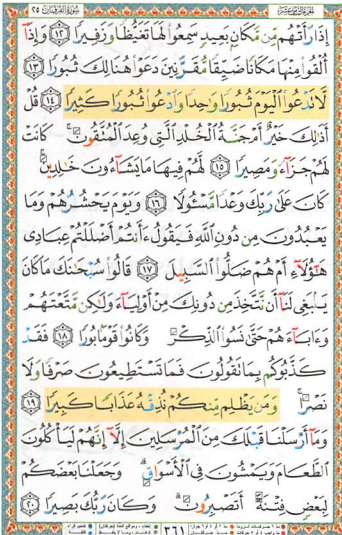 الجزء الثامن عشر سورة الفرقان ٢٥
إِذَا رَأَتْهُم مِّن مَّكَانٍ بَعِيدٍ سَمِعُوا۟ لَهَا تَغَيُّظًا وَزَفِيرًا ١٢ وَإِذَآ
أُلْقُوا۟ مِنْهَا مَكَانًا ضَيِّقًا مُّقَرَّنِينَ دَعَوْا۟ هُنَالِكَ ثُبُورًا ١٣
لَّا تَدْعُوا۟ ٱلْيَوْمَ ثُبُورًا وَٰحِدًا وَٱدْعُوا۟ ثُبُورًا كَثِيرًا ١٤ قُلْ
أَذَٰلِكَ خَيْرٌ أَمْ جَنَّةُ ٱلْخُلْدِ ٱلَّتِى وُعِدَ ٱلْمُتَّقُونَ ۚ كَانَتْ
لَهُمْ جَزَآءً وَمَصِيرًا ١٥ لَّهُمْ فِيهَا مَا يَشَآءُونَ خَٰلِدِينَ ۚ
كَانَ عَلَىٰ رَبِّكَ وَعْدًا مَّسْـُٔولًا ١٦ وَيَوْمَ يَحْشُرُهُمْ وَمَا
يَعْبُدُونَ مِن دُونِ ٱللَّهِ فَيَقُولُ ءَأَنتُمْ أَضْلَلْتُمْ عِبَادِى
هَٰٓؤُلَآءِ أَمْ هُمْ ضَلُّوا۟ ٱلسَّبِيلَ ١٧ قَالُوا۟ سُبْحَٰنَكَ مَا كَانَ
يَنۢبَغِى لَنَآ أَن نَّتَّخِذَ مِن دُونِكَ مِنْ أَوْلِيَآءَ وَلَٰكِن مَّتَّعْتَهُمْ
وَءَابَآءَهُمْ حَتَّىٰ نَسُوا۟ ٱلذِّكْرَ وَكَانُوا۟ قَوْمًۢا بُورًا ١٨ فَقَدْ
كَذَّبُوكُم بِمَا تَقُولُونَ فَمَا تَسْتَطِيعُونَ صَرْفًا وَلَا
نَصْرًا ۚ وَمَن يَظْلِم مِّنكُمْ نُذِقْهُ عَذَابًا كَبِيرًا ١٩
وَمَآ أَرْسَلْنَا قَبْلَكَ مِنَ ٱلْمُرْسَلِينَ إِلَّآ إِنَّهُمْ لَيَأْكُلُونَ
ٱلطَّعَامَ وَيَمْشُونَ فِى ٱلْأَسْوَاقِ ۗ وَجَعَلْنَا بَعْضَكُمْ
لِبَعْضٍ فِتْنَةً أَتَصْبِرُونَ ۗ وَكَانَ رَبُّكَ بَصِيرًا ٢٠
٣٦١